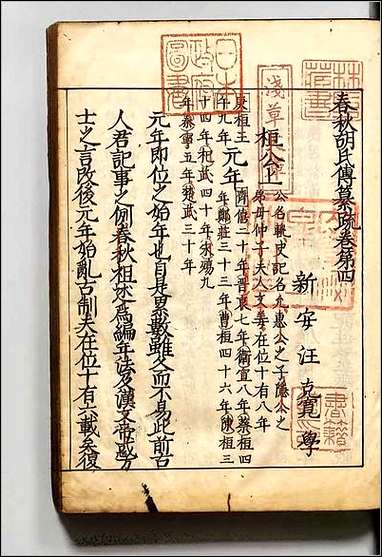 春秋胡氏傳纂疏卷第四
新安汪克寬學
桓公上
公名軌史記名允惠公之子隱公之
弟母仲子夫人文姜在位十有八年
庚桓王
午九年
元年
齊僖二十年晉哀七年衛宣八年蔡桓四
年鄭莊三十三年曹桓四十六年陳桓三
十四年杞武四十年宋殤九
年秦寧五年楚武三十年
元年即位之始年也自是累數雖久而不易此前古
人君記事之例春秋祖述為編年法及漢文帝惑方
士之言改後元年始亂古制夫在位十有六載矣復
日本
政府
圖書
淺草文庫
林氏
藏書
書籍